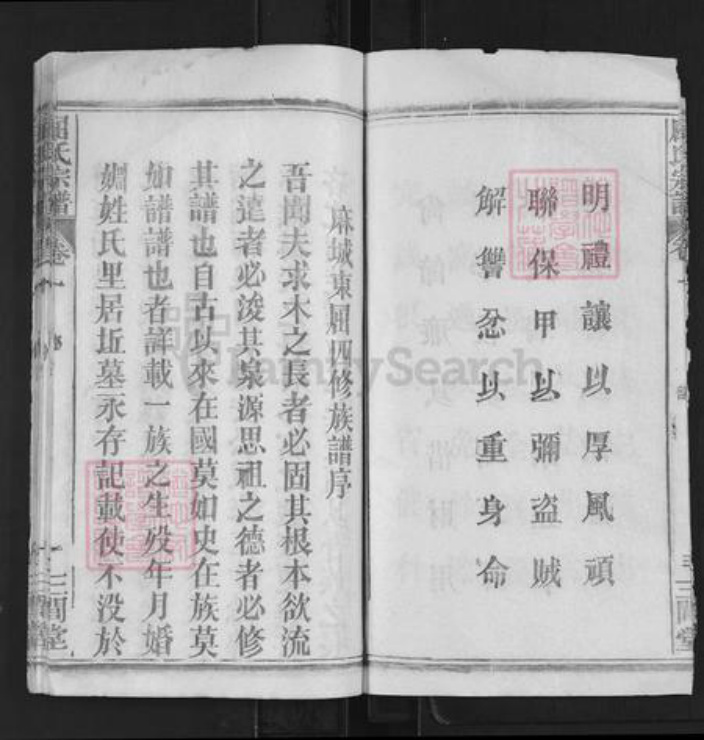 明禮讓以厚風頑
聯保甲以彌盜賊
解讐忿以重身命
三閭堂
麻城東屈四修族譜序
吾聞夫求木之長者必固其根本欲流
之達者必浚其泉源思祖之德者必修
其譜也自古以來在國莫如史在族莫
如譜譜也者詳載一族之生殁年月婚
姻姓氏里居坵墓永存記載使不没於
屈氏宗譜 卷一
三閭堂
FamilySearch